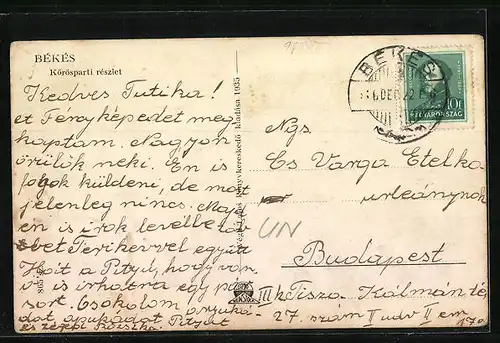 BÉKÉS
Kőrösparti részlet
Kedves Tutika!
et Fényképedet meg
kaptam. Nagyon
örülök neki. Én is
fogok küldeni, de most
jelenleg nincs. Majd
én is írok levelbe
Terikevvel együtt
Hát a Pityu, hogy van
ő is írhatna egy pár
sort. Csókolom anyuká-
dat apukádat Pityut
és Rózsika.
kiadása 1935
BÉKÉS
DEC. 22
10f
MAGYARORSZÁG
Ngs.
Cs Varga Etelka
urleánynak
UN
Budapest
III k Tisza Kálmán tér
27. szám II udv II em
17a